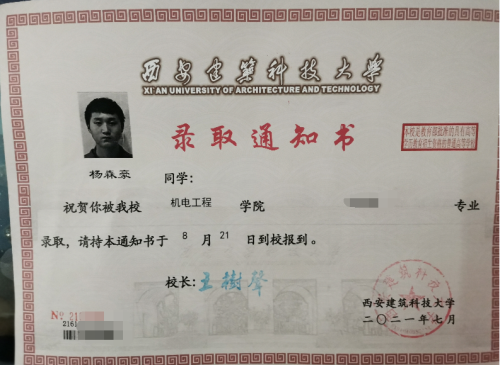 西安建筑科技大学
XI'AN UNIVERSITY OF ARCHITECTURE AND TECHNOLOGY
录取通知书
杨森豪 同学:
祝贺你被我校 机电工程 学院 专业
录取,请持本通知书于 8 月 21 日到校报到。
校长: 王樹聲
西安建筑科技大学
二〇二一年七月
№ 21
2161